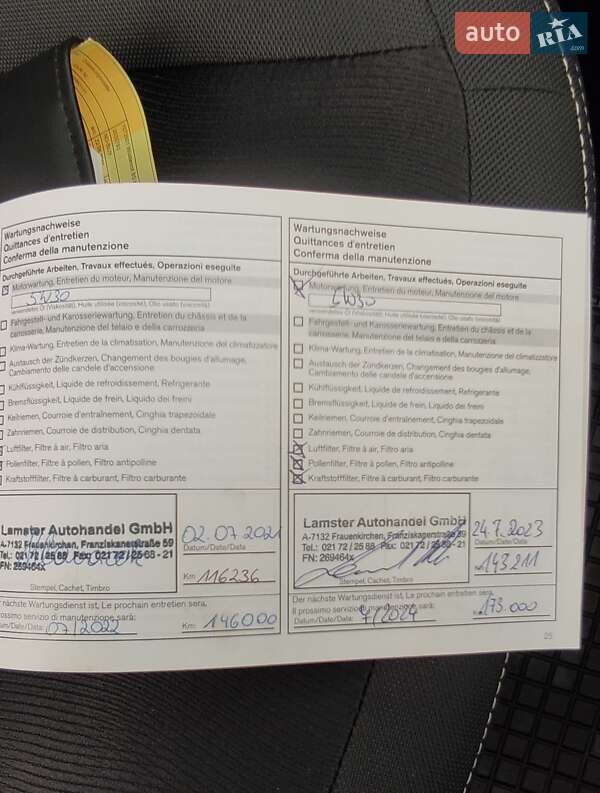 auto RIA .com
Wartungsnachweise
Quittances d'entretien
Conferma della manutenzione
Durchgeführte Arbeiten, Travaux effectués, Operazioni eseguite
Motorwartung, Entretien du moteur, Manutenzione del motore
5W30
verwendetes Öl (Viskosität), Huile utilisée (viscosité), Olio usato (viscosità)
Fahrgestell- und Karosseriewartung, Entretien du châssis et de la
carrosserie, Manutenzione del telaio e della carrozzeria
Klima-Wartung, Entretien de la climatisation, Manutenzione del climatizzatore
Austausch der Zündkerzen, Changement des bougies d'allumage,
Cambiamento delle candele d'accensione
Kühlflüssigkeit, Liquide de refroidissement, Refrigerante
Bremsflüssigkeit, Liquide de frein, Liquido dei freni
Keilriemen, Courroie d'entraînement, Cinghia trapezoidale
Zahnriemen, Courroie de distribution, Cinghia dentata
Luftfilter, Filtre à air, Filtro aria
Pollenfilter, Filtre à pollen, Filtro antipolline
Kraftstoffilter, Filtre à carburant, Filtro carburante
Lamster Autohandel GmbH
A-7132 Frauenkirchen, Franziskanerstraße 59
Tel.: 02172/2588 Fax: 02172/2588-21
FN: 269464x
Stempel, Cachet, Timbro
02.07.2021
Datum/Date/Data
Km 116236
nächste Wartungsdienst ist, Le prochain entretien sera,
prossimo servizio di manutenzione sarà:
Datum/Date/Data: 07/2022
Km: 146000
Wartungsnachweise
Quittances d'entretien
Conferma della manutenzione
Durchgeführte Arbeiten, Travaux effectués, Operazioni eseguite
Motorwartung, Entretien du moteur, Manutenzione del motore
verwendetes Öl (Viskosität), Huile utilisée (viscosité), Olio usato (viscosità)
Fahrgestell- und Karosseriewartung, Entretien du châssis et de la
carrosserie, Manutenzione del telaio e della carrozzeria
Klima-Wartung, Entretien de la climatisation, Manutenzione del climatizzatore
Austausch der Zündkerzen, Changement des bougies d'allumage,
Cambiamento delle candele d'accensione
Kühlflüssigkeit, Liquide de refroidissement, Refrigerante
Bremsflüssigkeit, Liquide de frein, Liquido dei freni
Keilriemen, Courroie d'entraînement, Cinghia trapezoidale
Zahnriemen, Courroie de distribution, Cinghia dentata
Luftfilter, Filtre à air, Filtro aria
Pollenfilter, Filtre à pollen, Filtro antipolline
Kraftstoffilter, Filtre à carburant, Filtro carburante
Lamster Autohandel GmbH
A-7132 Frauenkirchen, Franziskanerstraße 59
Tel.: 02172/2588 Fax: 02172/2588-21
FN: 269464x
Stempel, Cachet, Timbro
24.7.2023
Datum/Date/Data
Km 143211
Der nächste Wartungsdienst ist, Le prochain entretien sera,
Il prossimo servizio di manutenzione sarà:
Datum/Date/Data: 7/2024
Km: 173.000
25